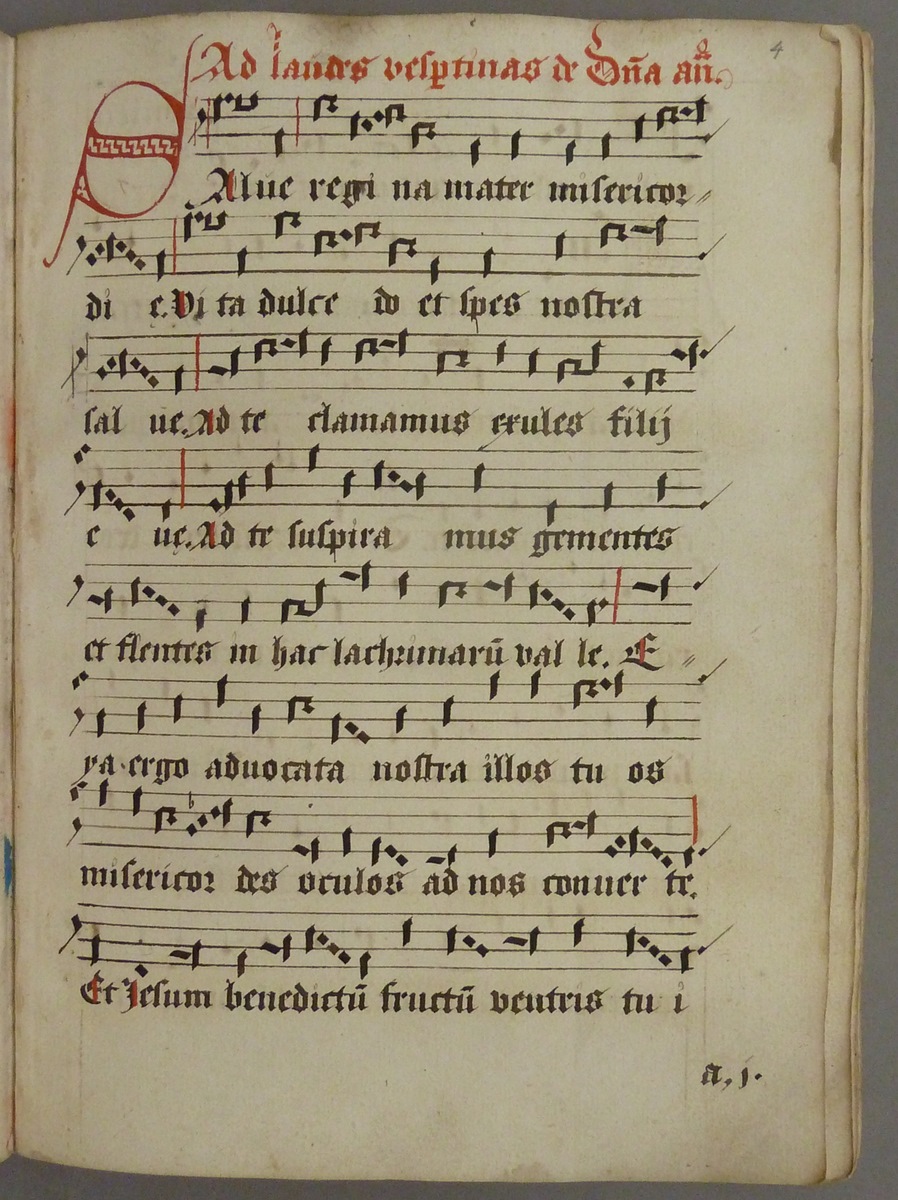 4
Ad laudes vesptinas de Dn̄a an̄.
SAlue regi na mater misericor〃
di e. Vi ta dulce do et spes nostra
sal ue. Ad te clamamus exules filij
e ue. Ad te suspira mus gementes
et flentes in hac lachrimarū val le. E〃
ya ergo aduocata nostra illos tu os
misericor des oculos ad nos conuer te.
Et Jesum benedictū fructū ventris tu i
a, j.